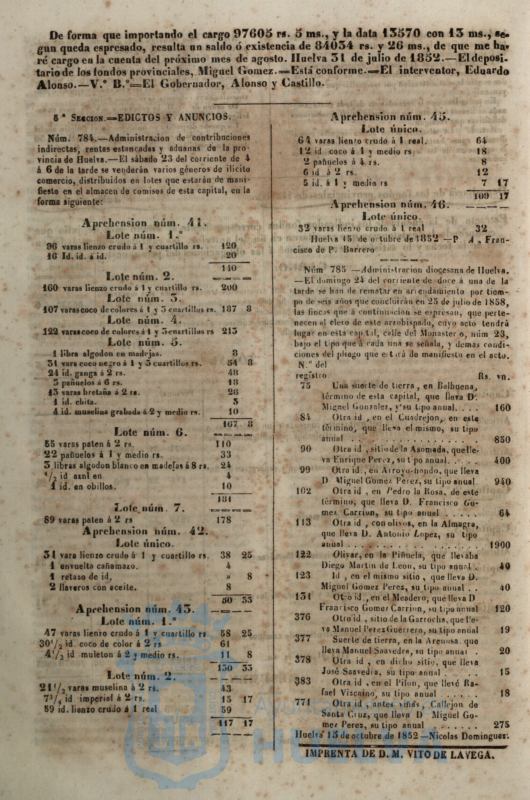 De forma que importando el cargo 97605 rs. 5 ms., y la data 13570 con 13 ms., se-
gun queda espresado, resulta un saldo ó existencia de 84034 rs. y 26 ms., de que me ha-
ré cargo en la cuenta del próximo mes de agosto. Huelva 31 de julio de 1852.—El deposi-
tario de los fondos provinciales, Miguel Gomez.—Está conforme.—El interventor, Eduardo
Alonso.—V.º B.º—El Gobernador, Alonso y Castillo.
5ª SECCION.—EDICTOS Y ANUNCIOS.
Núm. 784.—Administracion de contribuciones
indirectas, rentas estancadas y aduanas de la pro-
vincia de Huelva.—El sábado 23 del corriente de 4
á 6 de la tarde se venderán varios géneros de ilícito
comercio, distribuidos en lotes que estarán de mani-
fiesto en el almacen de comisos de esta capital, en la
forma siguiente:
Aprehension núm. 41.
Lote núm. 1.º
96 varas lienzo crudo á 1 y cuartillo rs. 120
16 Id. id. á id. 20
140
Lote núm. 2.
160 varas lienzo crudo á 1 y cuartillo rs. 200
Lote núm. 3.
107 varas coco de colores á 1 y 3 cuartillos rs. 187 8
Lote núm. 4.
122 varas coco de colores á 1 y 3 cuartillos rs 213
Lote núm. 5.
1 libra algodon en madejas. 8
31 vara coco negro á 1 y 3 cuartillos rs. 54 8
24 id. ganga á 2 rs. 48
3 pañuelos á 6 rs. 18
13 varas bretaña á 2 rs. 26
1 id. chita. 3
4 id. muselina grabada á 2 y medio rs. 10
167 8
Lote núm. 6.
55 varas paten á 2 rs. 110
22 pañuelos á 1 y medio rs. 33
3 libras algodon blanco en madejas á 8 rs. 24
1/2 id azul en 4
1 id. en obillos. 10
181
Lote núm. 7.
89 varas paten á 2 rs 178
Aprehension núm. 42.
Lote único.
31 vara lienzo crudo á 1 y cuartillo rs. 38 25
1 envuelta cañamazo. 4
1 retazo de id, » 8
2 llaveros con aceite. 8
50 33
Aprehension núm. 43.
Lote núm. 1.º
47 varas lienzo crudo á 1 y cuartillo rs 58 25
30 1/2 id coco de color á 2 rs 61
4 1/2 id muleton á 2 y medio rs. 11 8
130 33
Lote núm. 2.
21 1/2 varas muselina á 2 rs. 43
7 1/2 id imperial á 2 rs. 15 17
59 id. lienzo crudo á 1 real 59
117 17
Aprehension núm. 45.
Lote único.
64 varas lienzo crudo á 1 real. 64
12 id coco á 1 y medio rs 18
2 pañuelos á 4 rs. 8
6 id á 2 rs. 12
5 id. á 1 y medio rs 7 17
109 17
Aprehension núm. 46.
Lote único
32 varas lienzo crudo á 1 real 32
Huelva 15 de octubre de 1852—P A, Fran-
cisco de P. Barrero
Núm 785—Administracion diocesana de Huelva.
—El domingo 24 del corriente de doce á una de la
tarde se han de rematar en arrendamiento por tiem-
po de seis años que concluirán en 25 de julio de 1858,
las fincas que á continuacion se espresan, que perte-
necen al clero de este arzobispado, cuyo acto tendrá
lugar en esta capital, calle del Monasterio, núm 23,
bajo el tipo que á cada una se señala, y demas condi-
ciones del pliego que estará de manifiesto en el acto.
N.º del
registro Rs. vn.
75 Una suerte de tierra, en Balbuena,
término de esta capital, que lleva D.
Miguel Gonzalez, y su tipo anual. 160
84 Otra id, en el Cuadrejon, en este
término, que lleva el mismo, su tipo
anual 850
90 Otra id, sitio de la Asomada, que lle-
va Enrique Perez, su tipo anual. 400
99 Otra id, en Arroyo-hondo, que lleva
D Miguel Gomez Perez, su tipo anual. 940
102 Otra id, en Pedro la Rosa, de este
término, que lleva D. Francisco Go-
mez Carrion, su tipo anuel 64
113 Otra id, con olivos, en la Almagra,
que lleva D. Antonio Lopez, su tipo
anual 1900
122 Olivar, en la Piñuela, que llevaba
Diego Martin de Leon, su tipo anual. 40
123 Id, en el mismo sitio, que lleva D.
Miguel Gomez Perez, su tipo anual 40
131 Otro id, en el Meadero, que lleva D
Francisco Gomez Carrion, su tipo anual 120
376 Otro id, sitio de la Garrocha, que lle-
va Manuel Perez Guerrero, su tipo anual 19
377 Suerte de tierra, en la Arenosa, que
lleva Manuel Saavedra, su tipo anual 20
378 Otra id, en dicho sitio, que lleva
José Saavedra, su tipo anual 15
383 Otra id, en el Pilon, que llevó Ra-
fael Viscaino, su tipo anual 18
771 Otra id, antes viñas, Callejon de
Santa Cruz, que lleva D Miguel Go-
mez Perez, su tipo anual 275
Huelva 15 de octubre de 1852—Nicolas Dominguez.
IMPRENTA DE D. M. VITO DE LA VEGA.